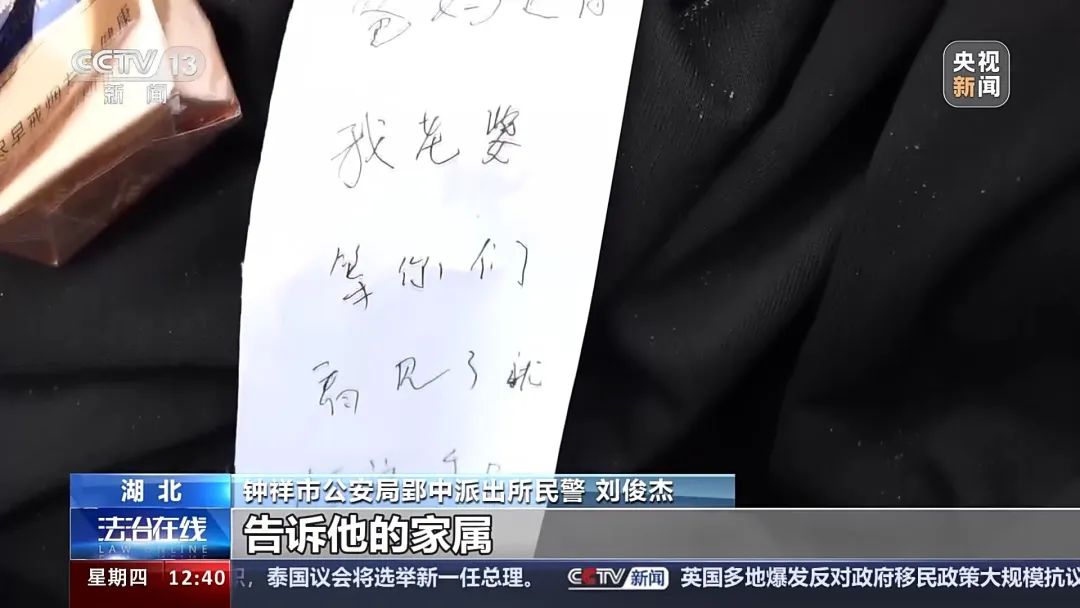 爸妈还有
CCTV 13
新闻
央视
新闻
尽早戒烟有 健康
我老婆
等你们
看见了就
湖北
钟祥市公安局郢中派出所民警 刘俊杰
法治在线
LAW ONLINE
告诉他的家属
星期四 12:40
，泰国议会将选举新一任总理。 CCTV 新闻 英国多地爆发反对政府移民政策大规模抗议